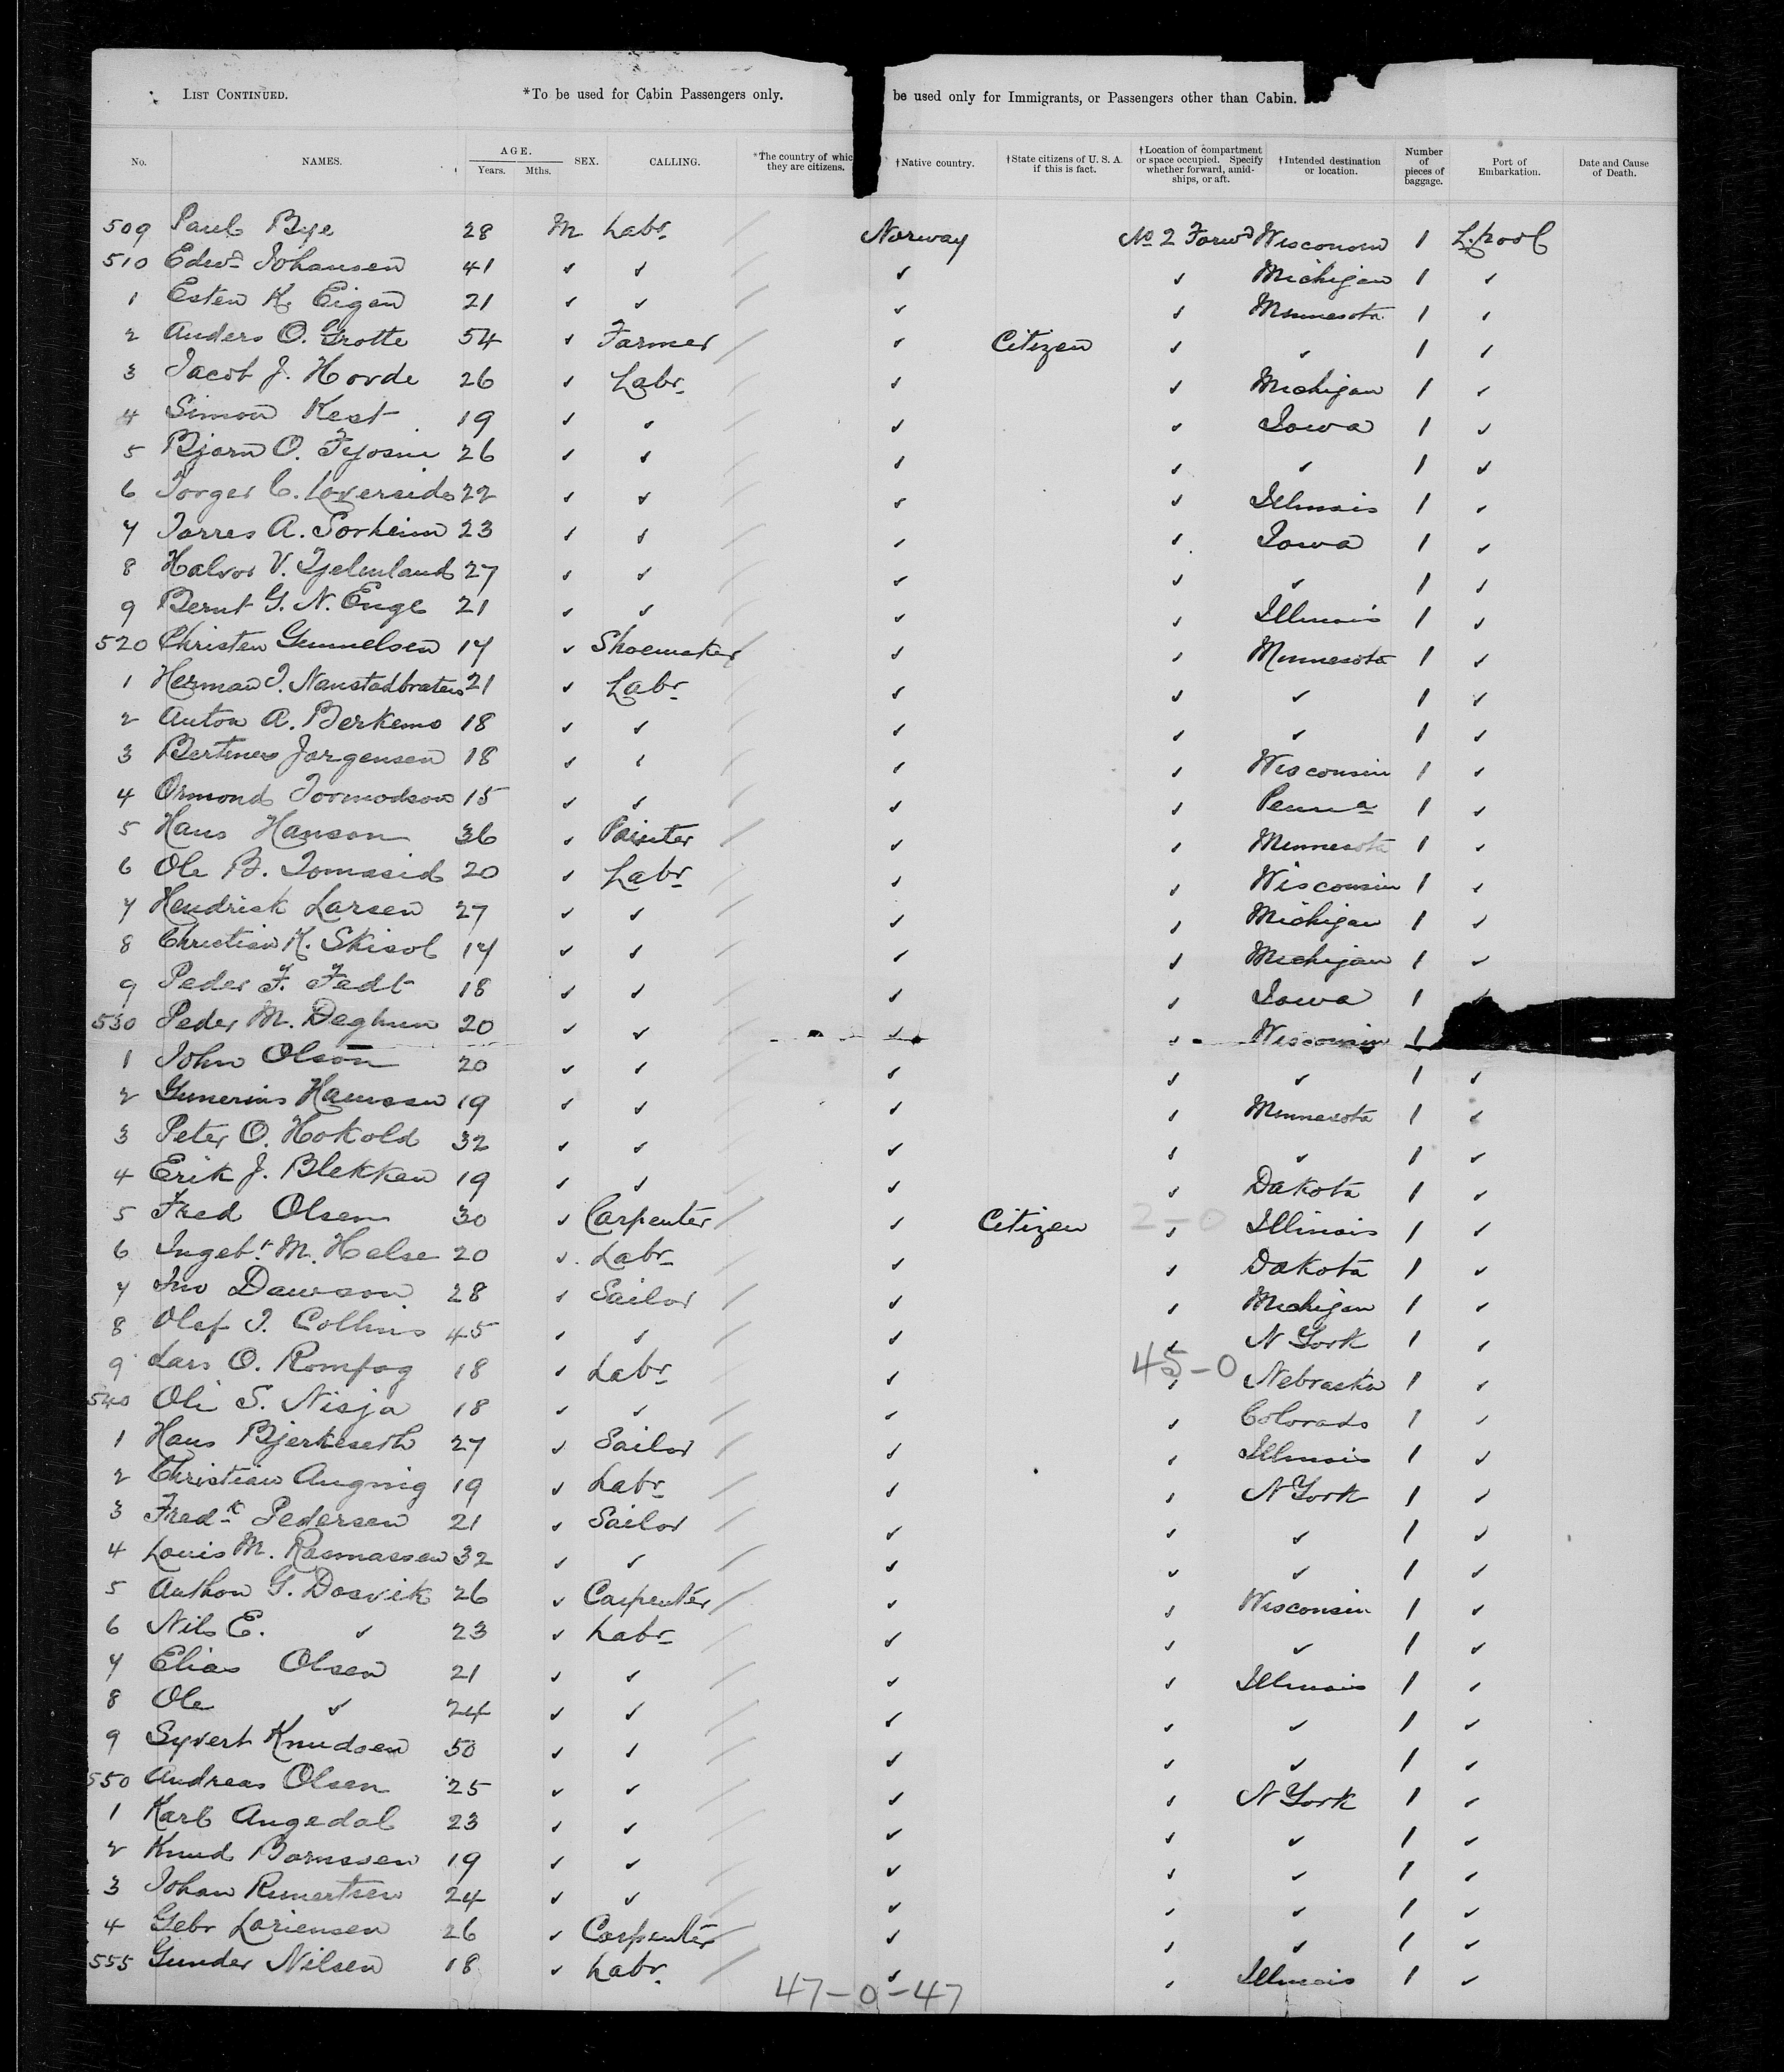 LIST CONTINUED. *To be used for Cabin Passengers only. be used only for Immigrants, or Passengers other than Cabin.
No. NAMES. AGE. Years. Mths. SEX. CALLING. *The country of whic they are citizens. †Native country. †State citizens of U. S. A. if this is fact. †Location of compartment or space occupied. Specify whether forward, amidships, or aft. †Intended destination or location. Number of pieces of baggage. Port of Embarkation. Date and Cause of Death.
509 Paul Bye 28 M Labr / Norway No 2 Forwd Wisconsin 1 L.pool
510 Edwd Johansen 41 ✓ ✓ / ✓ ✓ Michigan 1 ✓
1 Esten K. Eigen 21 ✓ ✓ / ✓ ✓ Minnesota 1 ✓
2 Anders O. Grotte 54 ✓ Farmer / ✓ Citizen ✓ ✓ 1 ✓
3 Jacob J. Hovde 26 ✓ Labr / ✓ ✓ Michigan 1 ✓
4 Simon Kest 19 ✓ ✓ / ✓ ✓ Iowa 1 ✓
5 Bjorn O. 26 ✓ ✓ / ✓ ✓ ✓ 1 ✓
6 Torger C. 22 ✓ ✓ / ✓ ✓ Illinois 1 ✓
7 Torres A. Sorheim 23 ✓ ✓ / ✓ ✓ Iowa 1 ✓
8 Halvor V. Tjelmland 27 ✓ ✓ / ✓ ✓ ✓ 1 ✓
9 Bernt G. N. Enge 21 ✓ ✓ / ✓ ✓ Illinois 1 ✓
520 Christen Gunnelsen 17 ✓ Shoemaker / ✓ ✓ Minnesota 1 ✓
1 Herman J. Naustadbraten 21 ✓ Labr / ✓ ✓ ✓ 1 ✓
2 Anton A. Berkemo 18 ✓ ✓ / ✓ ✓ ✓ 1 ✓
3 Bertines Jorgensen 18 ✓ ✓ / ✓ ✓ Wisconsin 1 ✓
4 Ormond Tormodson 15 ✓ ✓ / ✓ ✓ Penna 1 ✓
5 Hans Hanson 36 ✓ Painter / ✓ ✓ Minnesota 1 ✓
6 Ole B. Tomasid 20 ✓ Labr / ✓ ✓ Wisconsin 1 ✓
7 Hendrick Larsen 27 ✓ ✓ / ✓ ✓ Michigan 1 ✓
8 Christian K. Skisol 17 ✓ ✓ / ✓ ✓ Michigan 1 ✓
9 Peder F. Fedt 18 ✓ ✓ / ✓ ✓ Iowa 1 ✓
530 Peder M. Deghun 20 ✓ ✓ / ✓ ✓ Wisconsin 1
1 John Olson 20 ✓ ✓ / ✓ ✓ ✓ 1 ✓
2 Gunerius Hanssen 19 ✓ ✓ / ✓ ✓ Minnesota 1 ✓
3 Peter O. Hokold 32 ✓ ✓ / ✓ ✓ ✓ 1 ✓
4 Erik J. Blekken 19 ✓ ✓ / ✓ ✓ Dakota 1 ✓
5 Fred Olsen 30 ✓ Carpenter / ✓ Citizen 2-0 ✓ Illinois 1 ✓
6 Ingebt M. Helse 20 ✓ Labr / ✓ ✓ Dakota 1 ✓
7 Jno Dawson 28 ✓ Sailor / ✓ ✓ Michigan 1 ✓
8 Olaf J. Collins 45 ✓ ✓ / ✓ ✓ N York 1 ✓
9 Lars O. Rompog 18 ✓ Labr / ✓ 45-0 ✓ Nebraska 1 ✓
540 Oli S. Nisja 18 ✓ ✓ / ✓ ✓ Colorado 1 ✓
1 Hans Bjerkeseth 27 ✓ Sailor / ✓ ✓ Illinois 1 ✓
2 Christian Augnig 19 ✓ Labr / ✓ ✓ N York 1 ✓
3 Fredk Pedersen 21 ✓ Sailor / ✓ ✓ ✓ 1 ✓
4 Louis M. Rasmassen 32 ✓ ✓ / ✓ ✓ ✓ 1 ✓
5 Anthon G. Dosvik 26 ✓ Carpenter / ✓ ✓ Wisconsin 1 ✓
6 Nils E. ✓ 23 ✓ Labr / ✓ ✓ ✓ 1 ✓
7 Elias Olsen 21 ✓ ✓ / ✓ ✓ Illinois 1 ✓
8 Ole ✓ 24 ✓ ✓ / ✓ ✓ ✓ 1 ✓
9 Syvert Knudsen 50 ✓ ✓ / ✓ ✓ ✓ 1 ✓
550 Andreas Olsen 25 ✓ ✓ / ✓ ✓ N York 1 ✓
1 Karl Augedal 23 ✓ ✓ / ✓ ✓ ✓ 1 ✓
2 Knud Bornssen 19 ✓ ✓ / ✓ ✓ ✓ 1 ✓
3 Johan Runertsen 24 ✓ ✓ / ✓ ✓ ✓ 1 ✓
4 Gebr Loriensen 26 ✓ Carpenter / ✓ ✓ ✓ 1 ✓
555 Gunder Nilsen 18 ✓ Labr / ✓ ✓ Illinois 1 ✓
47-0-47